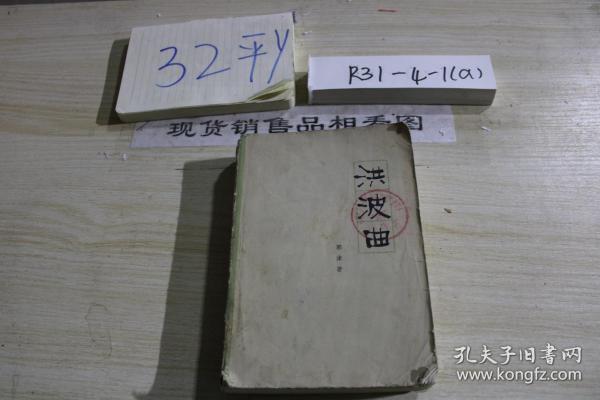 32平y
R31-4-1(a)
现货销售品相看图
洪波曲
著
孔夫子旧书网
www.kongfz.com